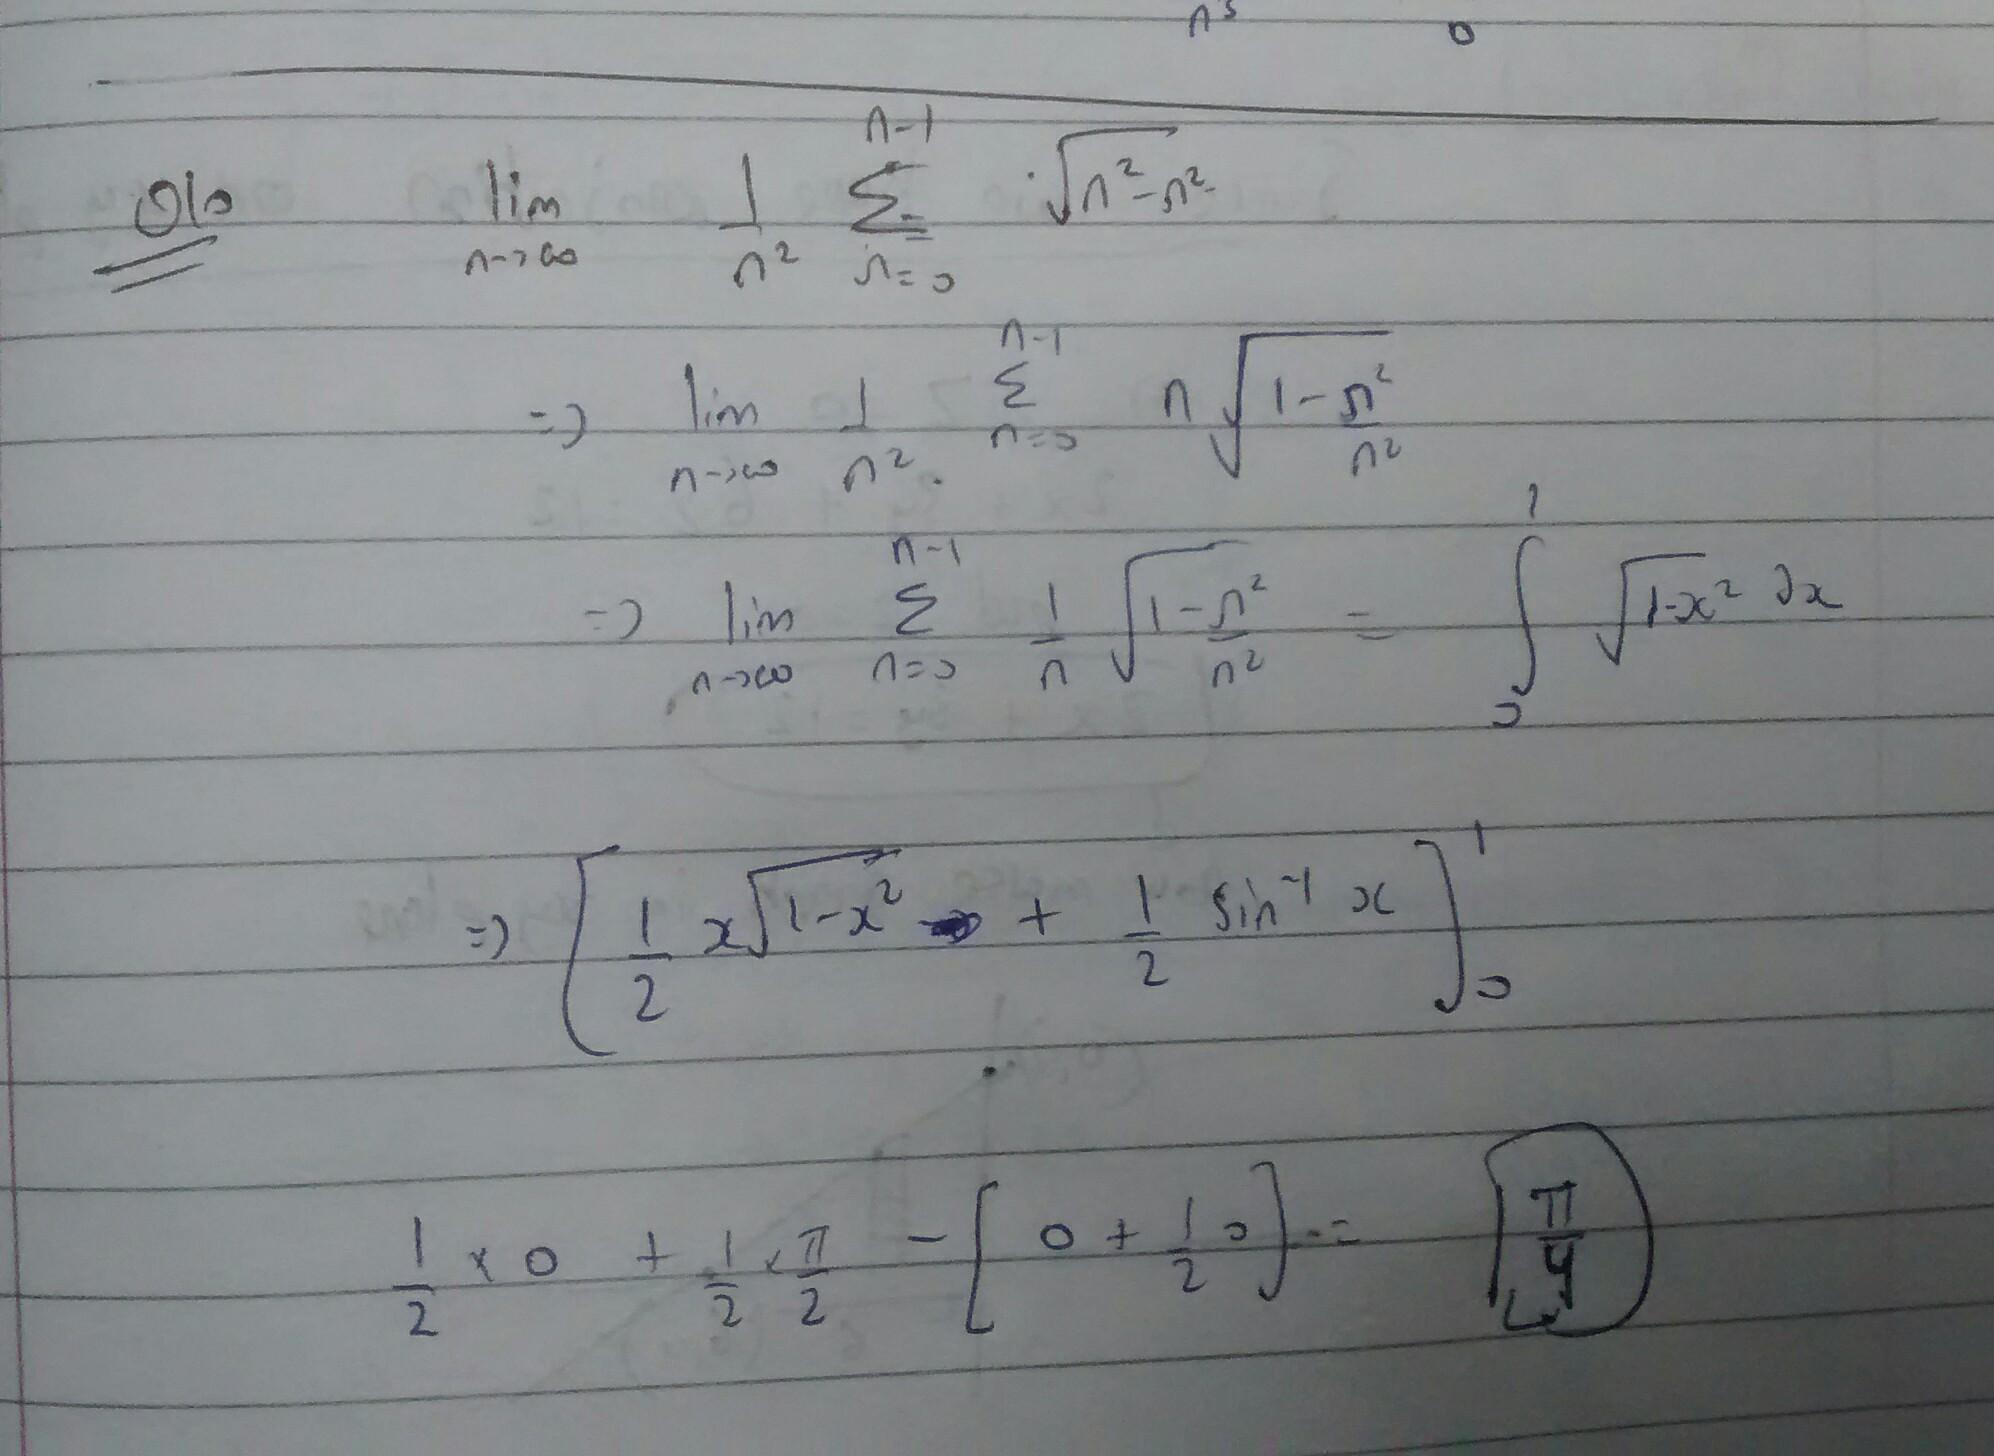 n³ 0
Q10 lim n→∞ 1/n² Σ_{r=0}^{n-1} √(n²-r²)
=> lim n→∞ 1/n² Σ_{r=0}^{n-1} n√(1-r²/n²)
=> lim n→∞ Σ_{r=0}^{n-1} 1/n √(1-r²/n²) = ∫₀¹ √(1-x²) dx
=> [1/2 x√(1-x²) + 1/2 sin⁻¹ x]₀¹
1/2 × 0 + 1/2 × π/2 - [0 + 1/2 0] = π/4